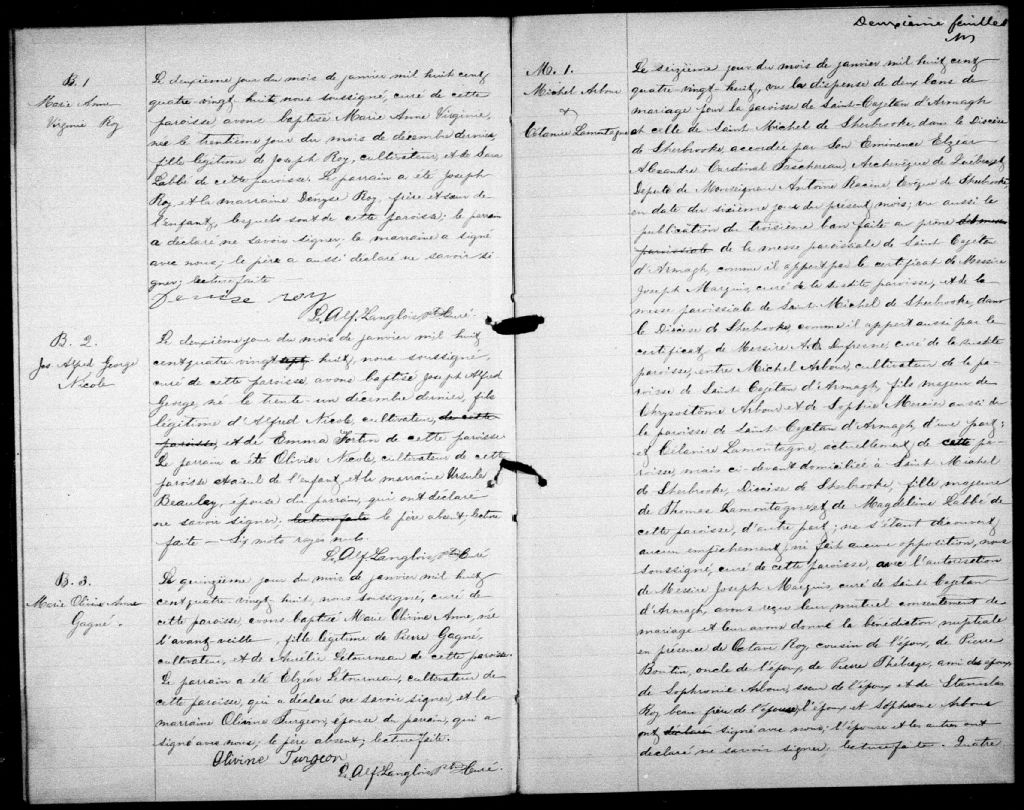 B. 1
Marie Anne
Virginie Roy
Le deuxième jour du mois de janvier mil huit cent
quatre-vingt huit, nous soussigné, curé de cette
paroisse avons baptisé Marie Anne Virginie,
née le trentième jour du mois de décembre dernier,
fille légitime de Joseph Roy, cultivateur, et de Sara
Labbé de cette paroisse. Le parrain a été Joseph
Roy, et la marraine Denyse Roy, frère et sœur de
l'enfant, lesquels sont de cette paroisse; le parrain
a déclaré ne savoir signer; la marraine a signé
avec nous; le père a aussi déclaré ne savoir si
gner; lecture faite
Denise roy
L. Alf. Langlois, Ptre Curé
B. 2.
Jos Alfred George
Nicole
Le deuxième jour du mois de janvier mil huit
cent quatre vingt sept huit, nous soussigné,
curé de cette paroisse, avons baptisé Joseph Alfred
George, né le trente un décembre dernier, fils
légitime d'Alfred Nicole, cultivateur, de cette
paroisse, et de Emma Fortin de cette paroisse
Le parrain a été Olivier Nicole, cultivateur de cette
paroisse et aïeul de l'enfant, et la marraine Ursule
Beauley, épouse du parrain, qui ont déclaré
ne savoir signer, lecture faite le père absent; lecture
faite - Six mots rayés nuls.
L. Alf. Langlois, Ptre Curé
B. 3.
Marie Olivine Anne
Gagné.
Le quinzième jour du mois de janvier mil huit
cent quatre vingt huit, nous soussigné, curé de
cette paroisse, avons baptisé Marie Olivine Anne, née
l'avant-veille, fille légitime de Pierre Gagné,
cultivateur, et de Aurélie Létourneau de cette paroisse.
Le parrain a été Elzéar Létourneau, cultivateur de
cette paroisse, qui a déclaré ne savoir signer, et la
marraine Olivine Turgeon, épouse du parrain, qui a
signé avec nous; le père absent; lecture faite.
Olivine Turgeon
L. Alf. Langlois Ptre Curé.
Deuxième feuillet
M. 1.
Michel Arbour
&
Célanire Lamontagne
Le seizième jour du mois de janvier mil huit cent
quatre vingt-huit, vu la dispense de deux bans de
mariage pour la paroisse de Saint-Cajetan d'Armagh
et celle de Saint Michel de Sherbrooke, dans le Diocèse
de Sherbrooke, accordée par Son Eminence Elzéar
Alexandre Cardinal Taschereau, Archevêque de Québec, et
Député de Monseigneur Antoine Racine, Evêque de Sherbrooke,
en date du sixième jour du présent mois; vu aussi la
publication du troisième ban faite au prône
paroissiale de la messe paroissiale de Saint Cajetan
d'Armagh, comme il appert par le certificat de Messire
Joseph Marquis, curé de la susdite paroisse, et de la
messe paroissiale de Saint Michel de Sherbrooke, dans
le Diocèse de Sherbrooke, comme il appert aussi par le
certificat de Messire Dufresne, curé de la susdite
paroisse, entre Michel Arbour, cultivateur de la pa-
roisse de Saint Cajetan d'Armagh, fils majeur de
Chrysostôme Arbour et de Sophie Mercier aussi de
la paroisse de Saint-Cajetan d'Armagh d'une part;
et Célanire Lamontagne, actuellement de cette pa-
roisse, mais ci-devant domiciliée à Saint Michel
de Sherbrooke, Diocèse de Sherbrooke, fille majeure
de Thomas Lamontagne, et de Magdeleine Labbé de
cette paroisse, d'autre part; ne s'étant découvert
aucun empêchement, ni fait aucune opposition, nous
soussigné, curé de cette paroisse, avec l'autorisation
de Messire Joseph Marquis, curé de Saint-Cajetan
d'Armagh, avons reçu leur mutuel consentement de
mariage et leur avons donné la bénédiction nuptiale
en présence de Octave Roy, cousin de l'époux, de Pierre
Boutin, oncle de l'époux, de Pierre Théberge, ami des époux,
de Sophronie Arbour, sœur de l'époux et de Stanislas
Roy beau frère de l'épouse, l'époux et Sophronie Arbour
ont déclaré signé avec nous; l'épouse et les autres ont
déclaré ne savoir signer, lecture faite. Quatre